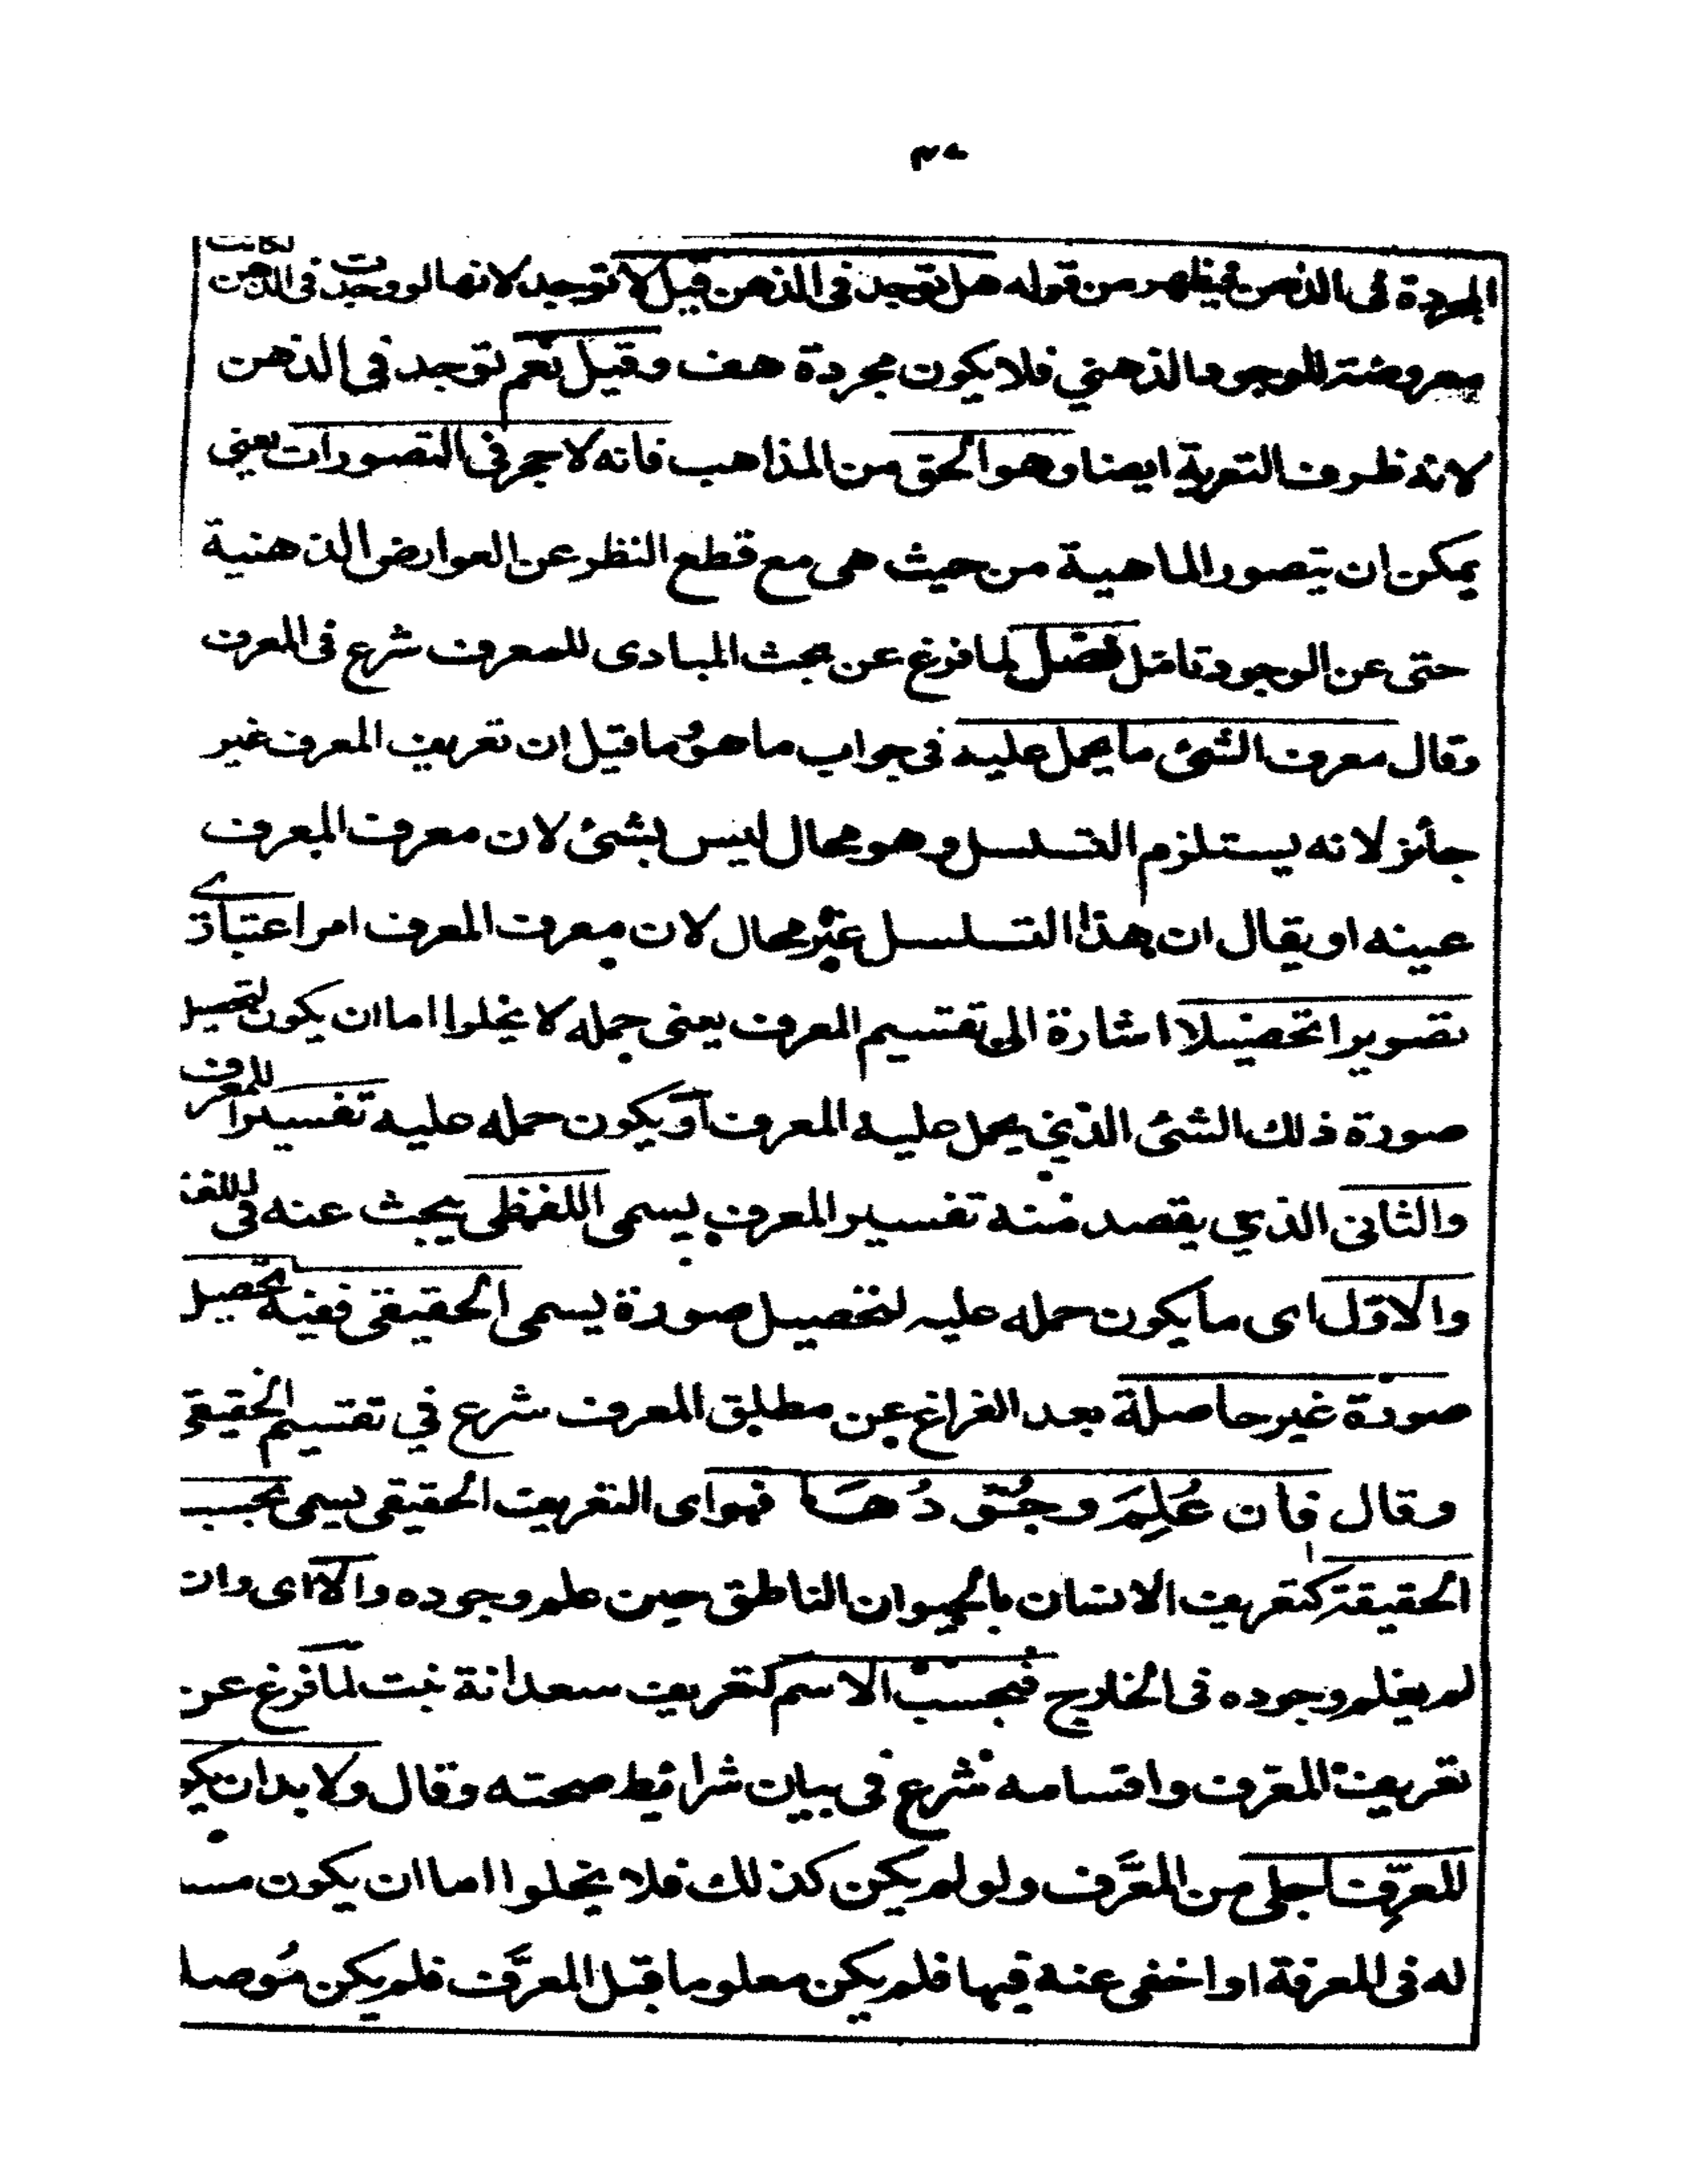 المجردة فى الذهن فيظهر من قوله هل توجد فى الذهن قيل لا توجد لانها لو وجدت فى الذهن لكانت
معروضة للوجود الذهني فلا يكون مجردة هف وقيل نعم توجد فى الذهن
لانه ظرف التعرية ايضا وهو الحق من المذاهب فانه لا حجر فى التصورات يعني
يمكن ان يتصور الماهية من حيث هى مع قطع النظر عن العوارض الذهنية
حتى عن الوجود تامل فصل لما فرغ عن بحث المبادى للمعرف شرع فى المعرف
وقال معرف الشئ ما يحمل عليه فى جواب ما هو وما قيل ان تعريف المعرف غير
جائز لانه يستلزم التسلسل وهو محال ليس بشئ لان معرف المعرف
عينه او يقال ان هذا التسلسل غير محال لان معرف المعرف امر اعتبارى
تصويرا تحصيلا اشارة الى تقسيم المعرف يعنى حمله لا يخلوا اما ان يكون لتحصيل
صورة ذلك الشئ الذي يحمل عليه المعرف او يكون حمله عليه تفسيرا للمعرف
والثانى الذي يقصد منه تفسير المعرف يسمى اللفظى يبحث عنه فى
والاول اى ما يكون حمله عليه لتحصيل صورة يسمى الحقيقى ففيه تحصيل
صورة غير حاصلة بعد الفراغ عن مطلق المعرف شرع في تقسيم الحقيقي
وقال فان عُلِمَ وجُودُ هَا فهو اى التعريف الحقيقى يسمى بحسب
الحقيقة كتعريف الانسان بالحيوان الناطق حين علم وجوده والا اى وان
لم يعلم وجوده فى الخارج فبحسب الاسم كتعريف سعدانة نبت لما فرغ عن
تعريف المعرف واقسامه شرع فى بيان شرائط صحته وقال ولا بد ان
للمعرِّف اجلى من المعَرَّف ولو لم يكن كذلك فلا يخلوا اما ان يكون
له فى المعرفة او اخفى عنه فيها فلم يكن معلوما قبل المعرَّف فلم يكن مُوصلا